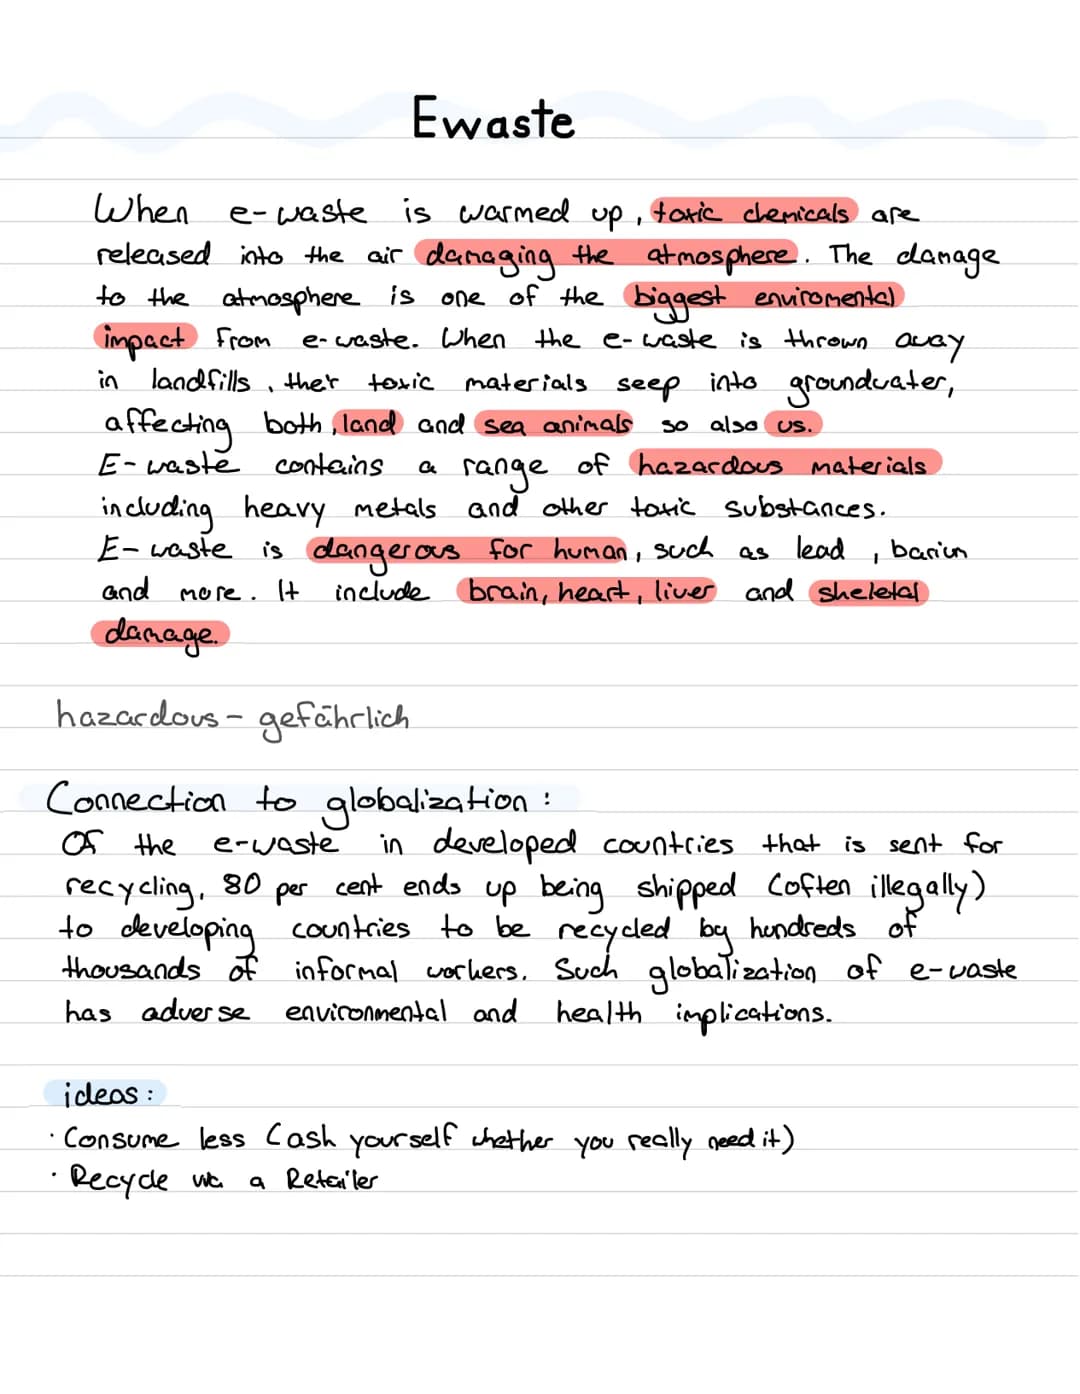 Ewaste
When e-waste is warmed up, toxic chemicals are
released into the air damaging the atmosphere. The damage
to the atmosphere is one of the biggest enviromental
impact from e-waste. When the e-waste is thrown away
in landfills, their toxic materials seep into groundwater,
affecting both, land and sea animals so also us.
E-waste contains a range of hazardous materials
including heavy metals and other toxic substances.
E-waste is dangerous for human, such as lead, barium
and more. It include brain, heart, liver and skeletal
damage.
hazardous - gefährlich
Connection to globalization:
Of the e-waste in developed countries that is sent for
recycling, 80 per cent ends up being shipped (often illegally)
to developing countries to be recycled by hundreds of
thousands of informal workers. Such globalization of e-waste
has adverse environmental and health implications.
ideas:
· Consume less (ask yourself whether you really need it)
· Recycle via a Retailer